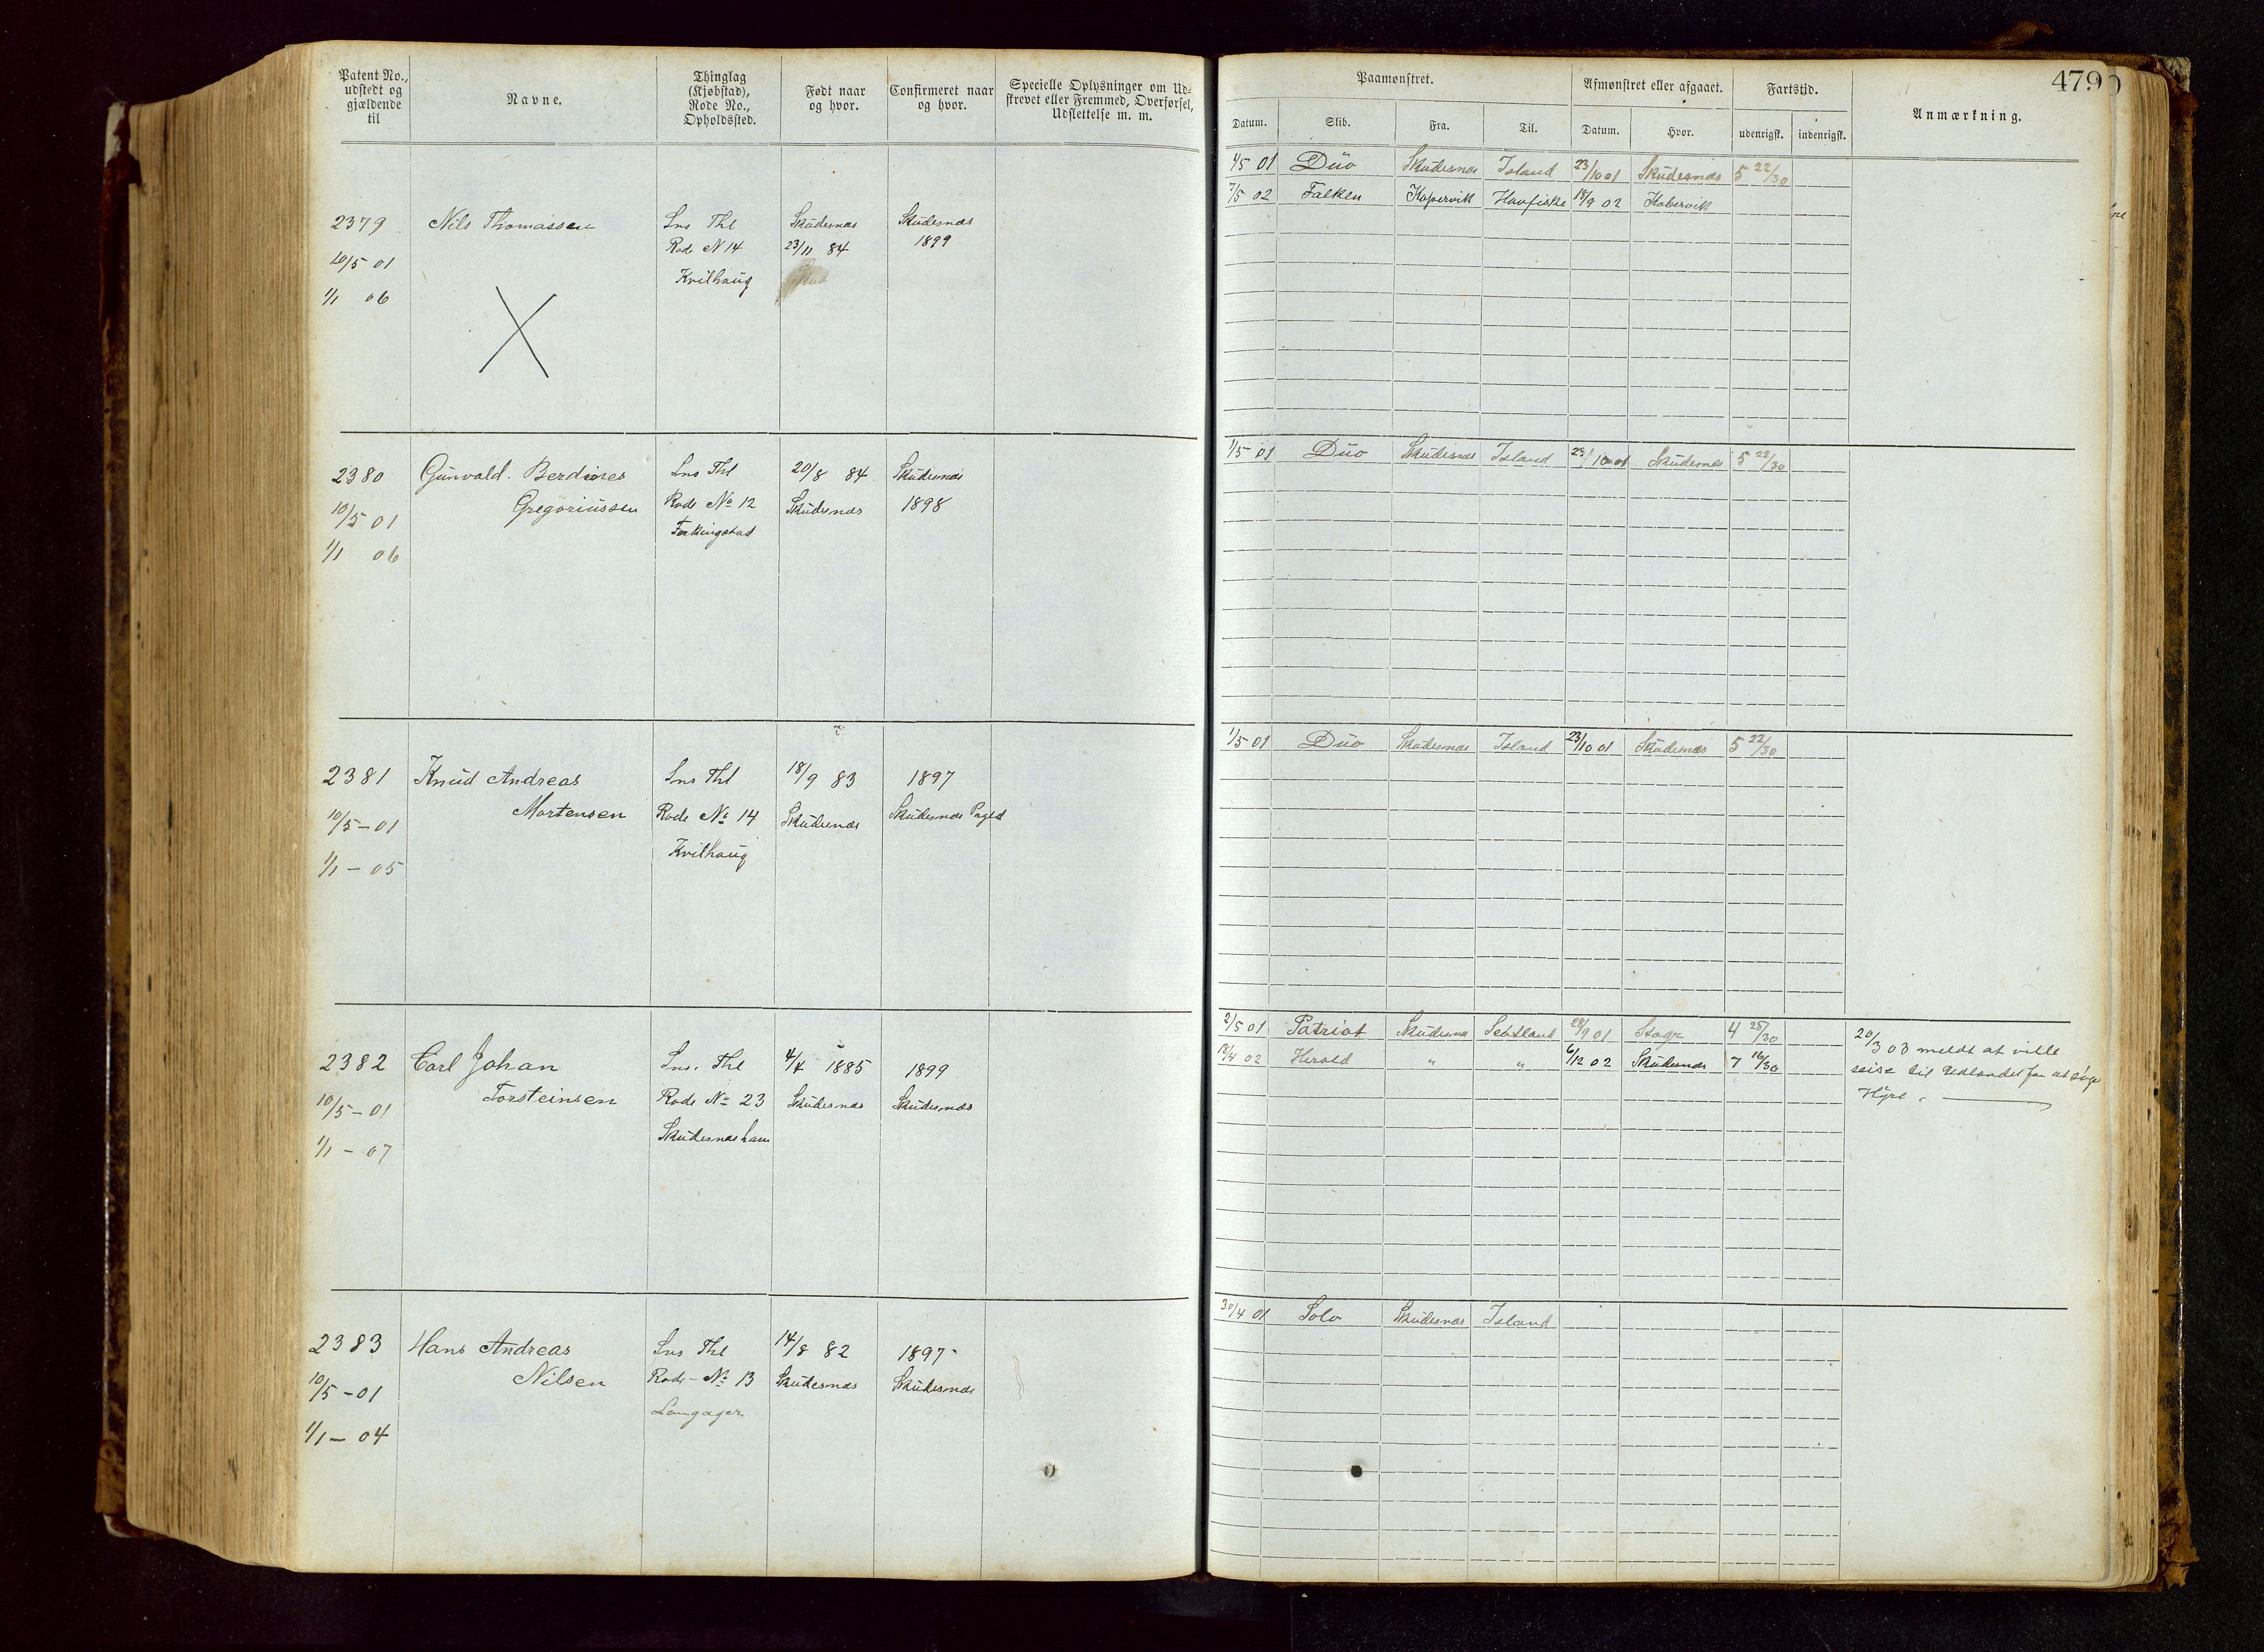 Patent No., udstedt og gjældende til
Navne.
Thinglag (Kjøbstad), Rode No., Opholdssted.
Født naar og hvor.
Confirmeret naar og hvor.
Specielle Oplysninger om Udskrevet eller Fremmed, Overførsel, Udslettelse m. m.
Paamønstret.
Afmønstret eller afgaaet.
Fartstid.
Anmærkning.
479
Datum.
Skib.
Fra.
Til.
Datum.
Hvor.
udenrigsk.
indenrigsk.
2379 Nils Thomassen Sns Thl Skudesnæs Skudesnæs
10/5 01 Rode N 14 23/11 84 1899
1/1 06 Kvilhaug
1/5 01 Duo Skudesnæs Island 23/10 01 Skudesnæs 5 22/30
7/5 02 Falken Kopervik Havfiske 18/9 02 Kobervik
2380 Gunvald Berdines Sns Thl 20/8 84 Skudesnæs
10/5 01 Gregoriussen Rode No 12 Skudesnæs 1898
1/1 06 Ferkingstad
1/5 01 Duo Skudesnæs Island 23/10 01 Skudesnæs 5 22/30
2381 Knud Andreas Sns Thl 18/9 83 1897
10/5-01 Mortensen Rode No 14 Skudesnæs Skudesnæs Pgld
1/1-05 Kvilhaug
1/5 01 Duo Skudesnæs Island 23/10 01 Skudesnæs 5 22/30
2382 Carl Johan Sns. Thl 4/4 1885 1899
10/5-01 Torsteinsen Rode No 23 Skudesnæs Skudesnæs
1/1-07 Skudesneshavn
2/5 01 Patriot Skudesnæs Schtland 28/9 01 4 25/30
18/4 02 Herold " " 6/12 02 Skudesnæs 7 16/30
20/3 03 meldt at ville
reise til Udlandet for at søge
Hyre.
2383 Hans Andreas Sns Thl 14/8 82 1897
10/5-01 Nilsen Rode-No 13 Skudesnæs Skudesnæs
1/1-04 Langager
30/4 01 Solo Skudesnæs Island